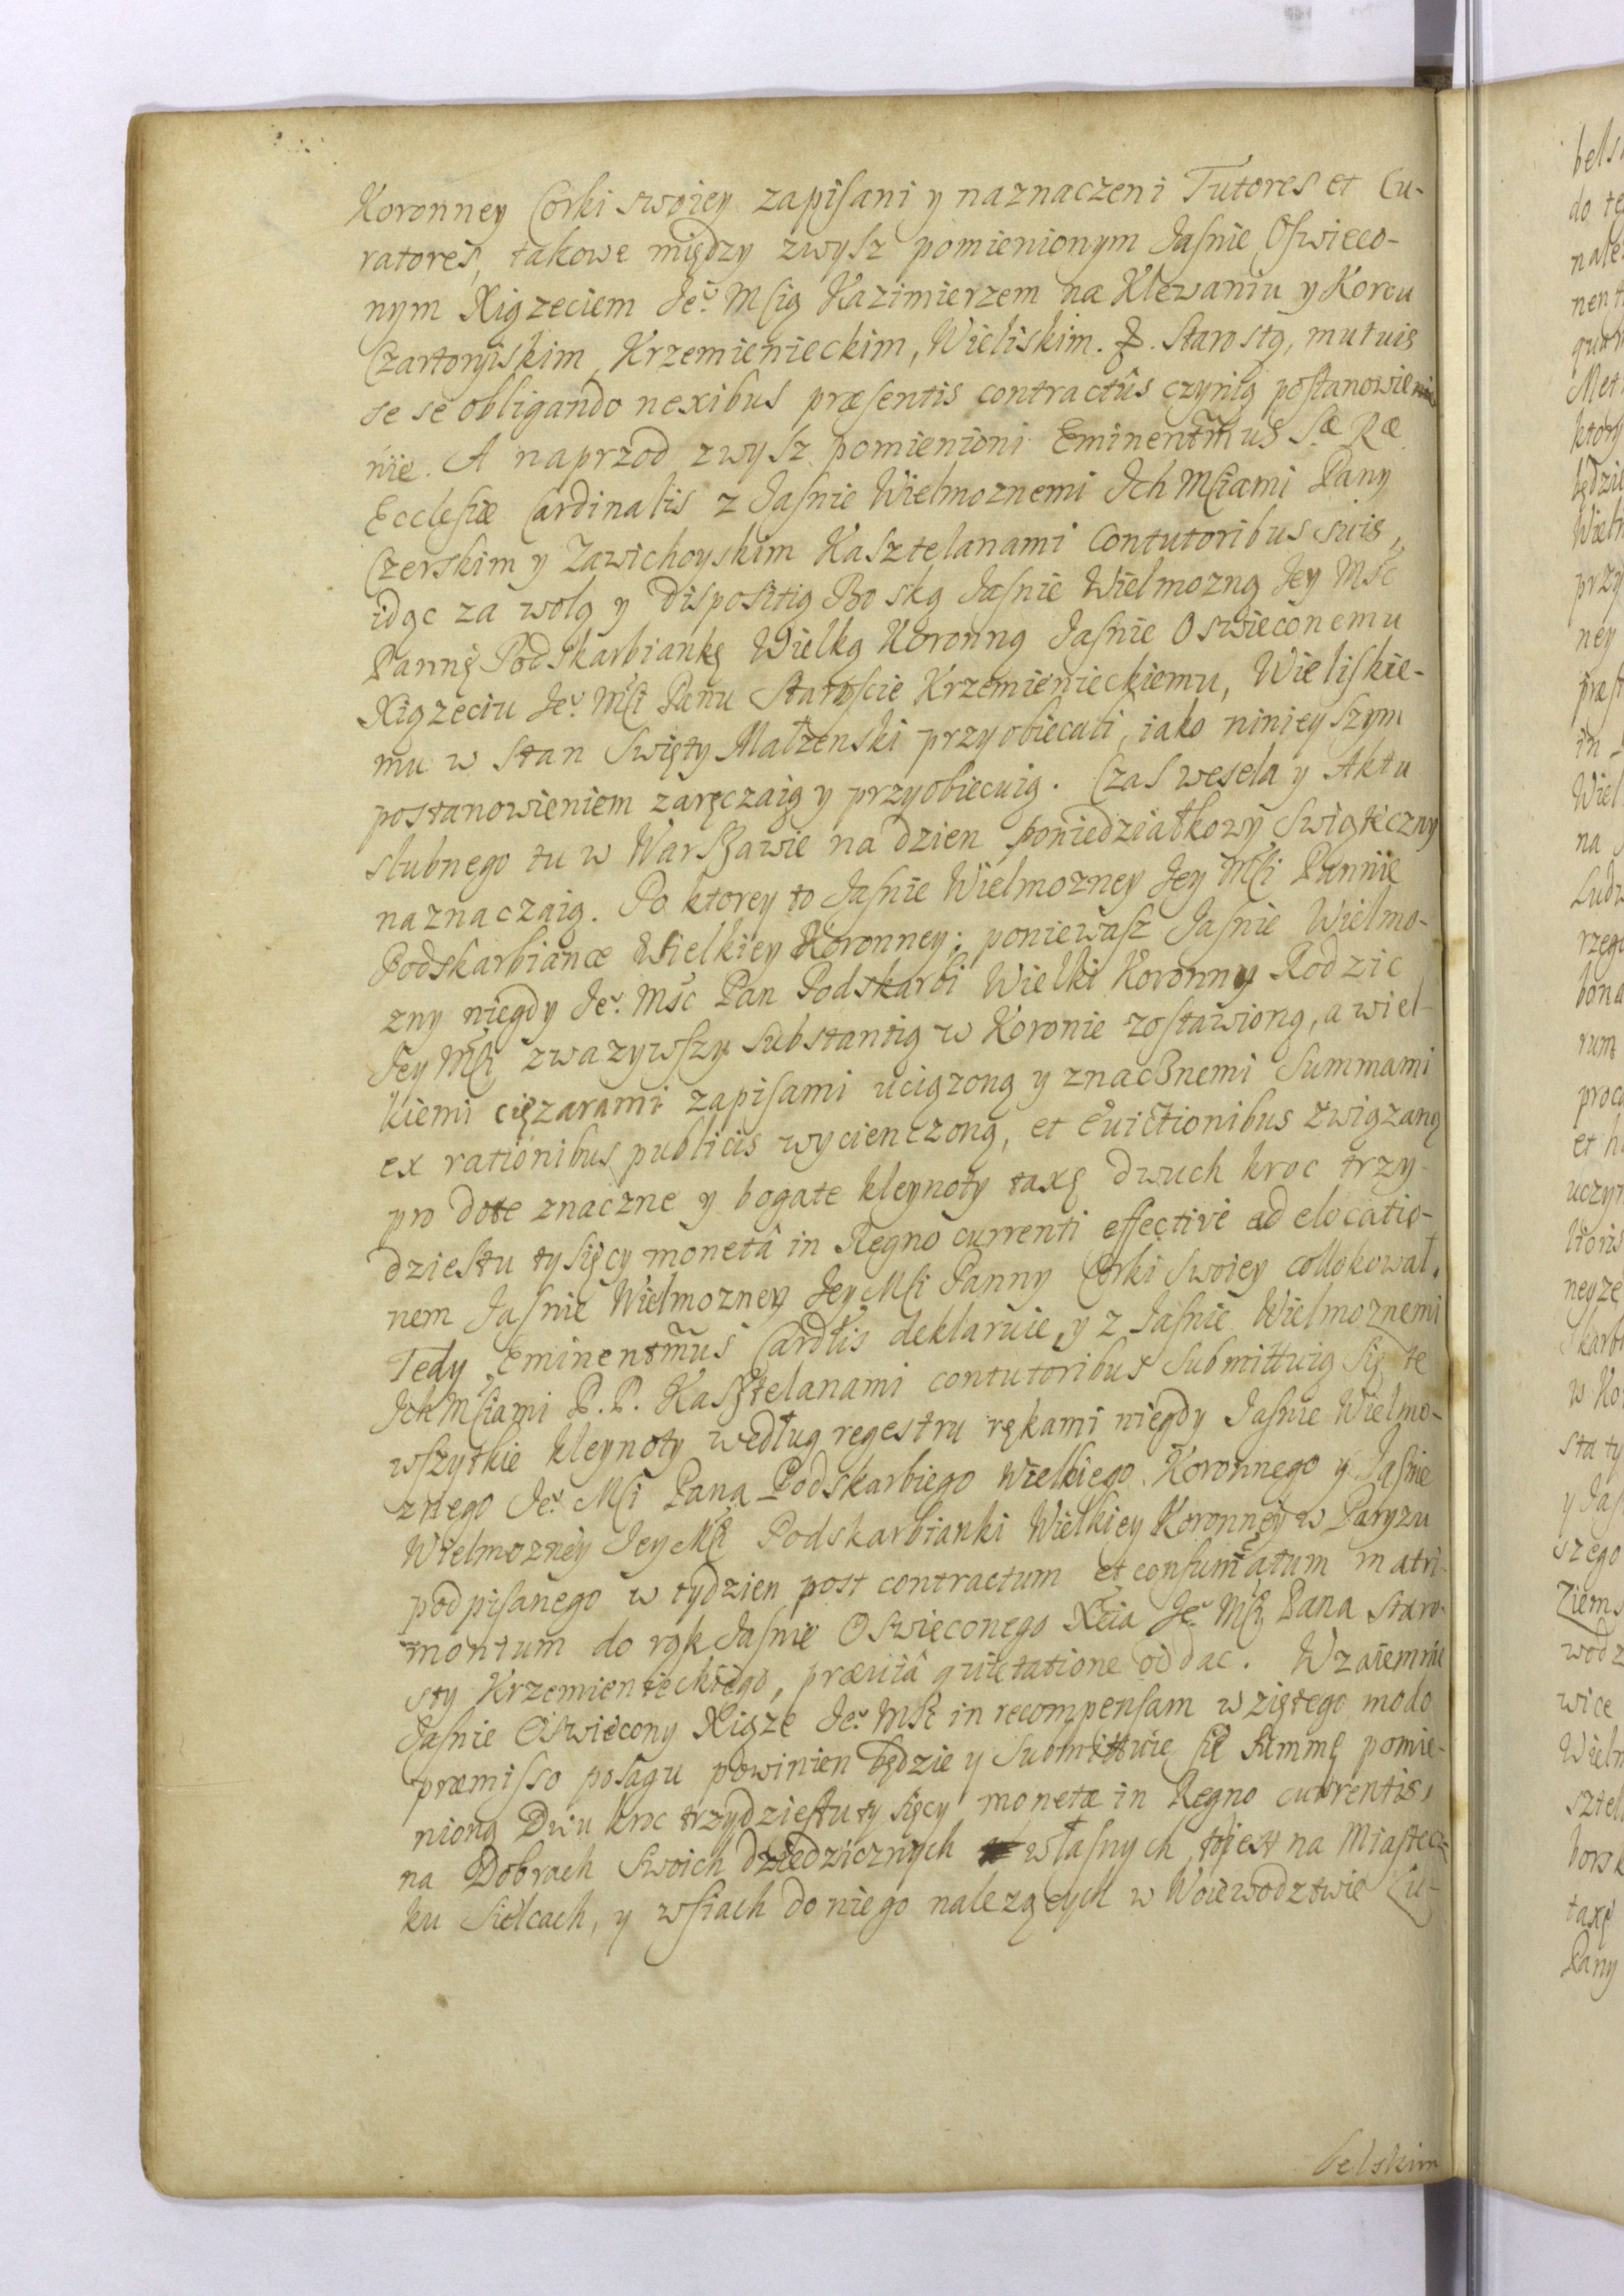 Koronney Corki swoiey zapisani y naznaczeni Tutores et Cu-
ratores, takowe między zwysz pomienionym Jasnie Oswieco-
nym Xiązeciem Je͠: Mścią Kazimierzem na Klewaniu y Korcu
Czartoryiskim, Krzemienieckim, Wieliskim. &. Starostą, mutuis
se se obligando nexibus præsentis contractûs czynią postanowieni
nie. A naprzod zwysz pomienioni Eminentm͠us Sæ Ræ
Ecclesiæ Cardinalis z Jasnie Wielmoznemi Ich Mściami Pany
Czerskim y Zawichoyskim Kasztelanami Contutoribus suis,
idąc za wolą y dispositią Boską Jasnie Wielmozną Jey Mśc
Pannę Podskarbiankę Wielką Koronną Jasnie Oswieconemu
Xiązeciu Je͠: Mśći Panu Staroscie Krzemienieckiemu, Wieliskie-
mu w stan Swięty Małżenski przyobiecali, iako ninieyszym
postanowieniem zaręczaią y przyobiecuią. Czas wesela y Aktu
slubnego tu w Warszawie na dzien poniedziałkowy Swiąteczny
naznaczaią. Po ktorey to Jasnie Wielmozney Jey Mści Pannie
Podskarbiance Wielkiey Koronney; poniewasz Jasnie Wielmo-
zny niegdy Je͠: Mśc Pan Podskarbi Wielki Koronny Rodzic
Jey Mści zwazywszy substantią w Koronie zostawioną, a wiel-
kiemi cięzarami zapisami uciązoną y znacznemi Summami
ex rationibus publicis wycienczoną, et Evictionibus związaną
pro dote znaczne y bogate kleynoty taxę dwuch kroc trzy-
dziestu tysięcy monetâ in Regno currenti effective ad elocatio-
nem Jasnie Wielmozney Jey Mści Panny Corki swoiey collokował.
Tedy Eminentm͠us Cardlis deklaruie, y z Jasnie Wielmoznemi
Ich Mściami P.P. Kasztelanami contutoribus submittuią się te
wszytkie kleynoty według regestru rękami niegdy Jasnie Wielmo-
znego Je͠: Mści Pana Podskarbiego Wielkiego Koronnego y Jasnie
Wielmozney Jey Mści Podskarbianki Wielkiey Koronney w Paryzu
podpisanego w tydzien post contractum et consum͠atum matri-
monium do rąk Jasnie Oswieconego Xcia Je͠: Mści Pana Staro-
sty Krzemienieckiego, præviâ quietatione oddac. Wzaiemnie
Jasnie Oswiecony Xiąze Je͠: Mśc in recompensam wziętego modo
præmisso posagu powinien będzie y submittuie się summę pomie-
nioną Dwu kroc trzydziestu tysięcy monetæ in Regno currentis,
na Dobrach Swoich dziedzicznych własnych, to iest na Miastecz-
ku Sielcach, y wsiach do niego nalezących w Woiewodztwie Lu-
belskim